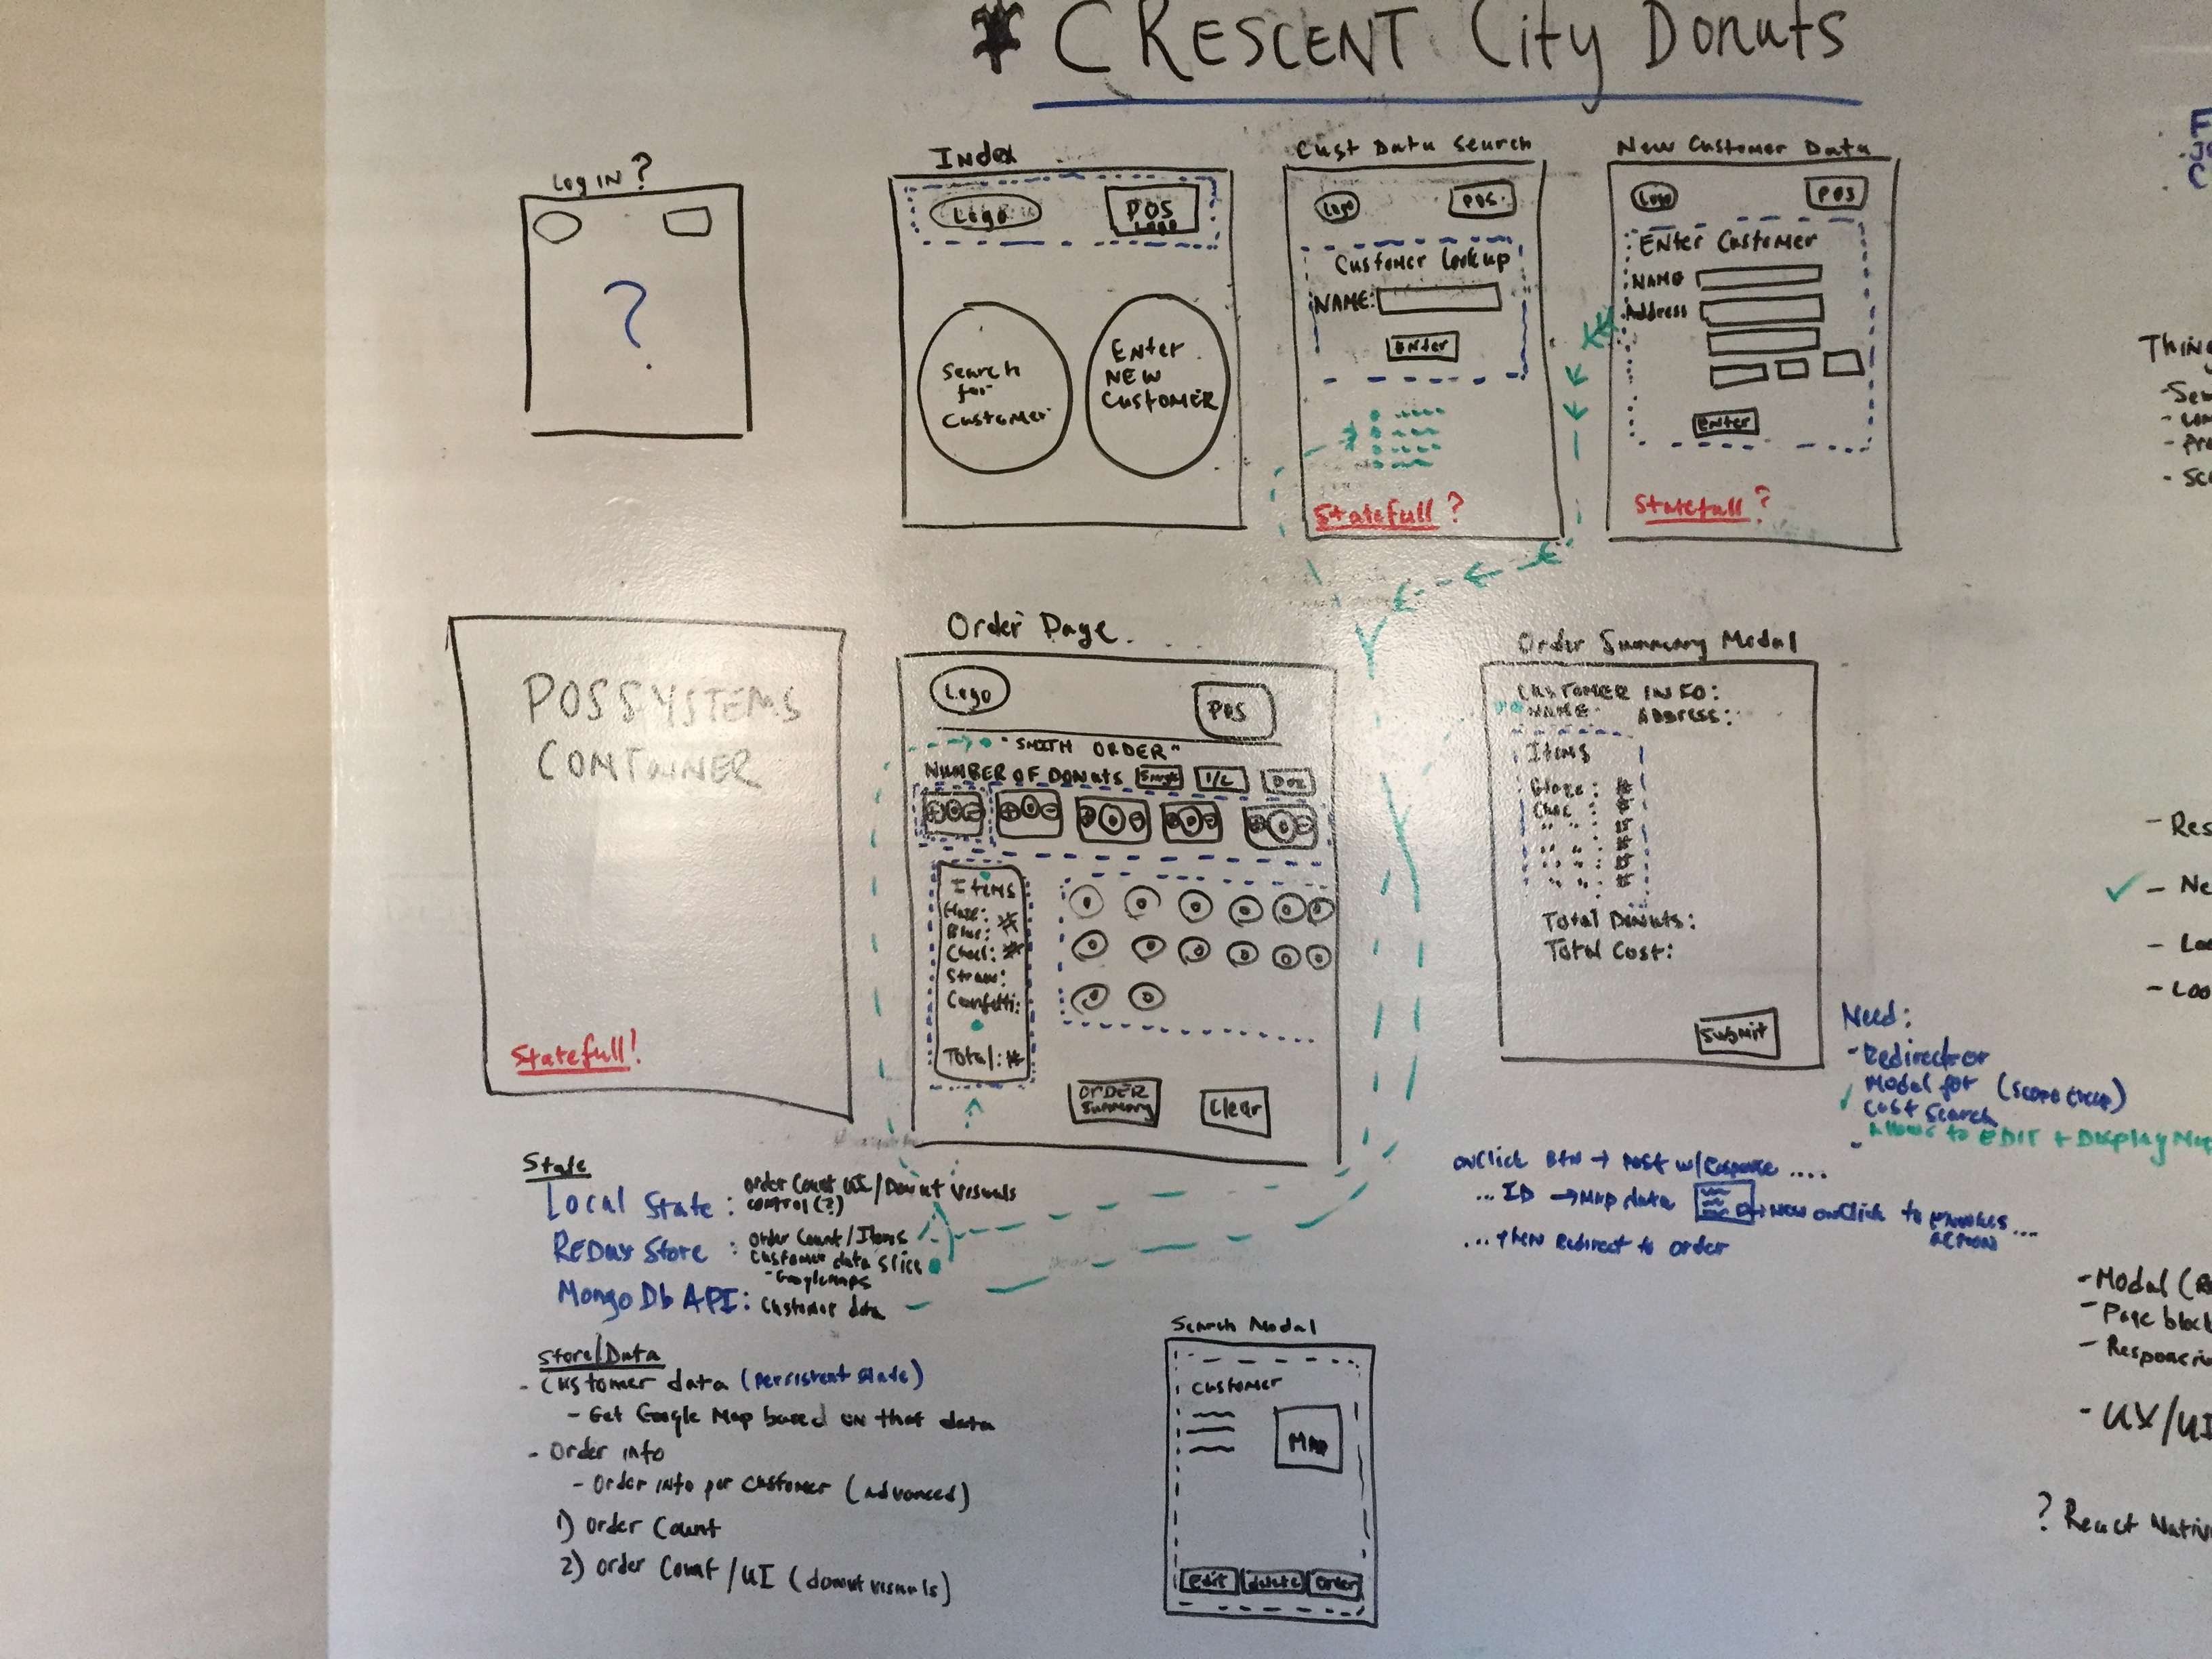 CRESCENT City Donuts
Log IN?
?
Index
Logo
POS
Logo
Search
for
Customer
Enter
NEW
CUSTOMER
Cust Data Search
Logo
POS
Customer Lookup
NAME:
Enter
Statefull?
New Customer Data
Logo
POS
ENter Customer
NAME
Address
Enter
Statefull?
POS SYSTEMS
CONTAINER
Statefull!
Order Page
Logo
POS
"SMITH ORDER"
NUMBER OF DONUTS Single 1/2 Doz
Items
Glaze: #
Blue: #
Choc: #
Straw:
Confetti:
Total: #
ORDER
Summary
Clear
Order Summary Modal
CUSTOMER INFO:
NAME: ADDRESS:
Items
Glaze: #
Choc : #
" " : #
" " : #
" " : #
" " : #
Total Donuts:
Total Cost:
Submit
Need:
- Redirect or
Modal for (scope creep)
Cust Search
Allows to EDIT + Display Map
onClick BTN → POST w/Response ....
... ID → Map data → New onClick to invokes ...
action
... then Redirect to order
State
Local State : Order Count UI/Donut Visuals
control(?)
REDux Store : Order Count/Items
Customer data slice
- GoogleMaps
MongoDb API: Customer data
Store/Data
- Customer data (Persistent State)
- Get Google Map based on that data
- Order info
- Order info per customer (advanced)
1) Order Count
2) Order Count/UI (donut visuals)
Search Modal
Customer
MAP
Edit delete Order
Thing
- Res
✓ - Ne
- Lo
- Loo
- Modal (R
- Page block
- Responsiv
- UX/UI
? React Nativ